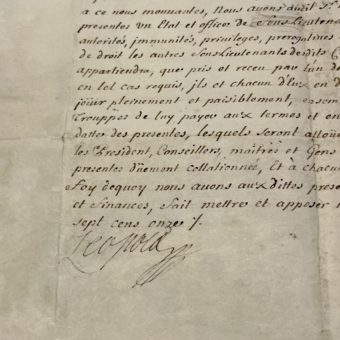 a ce nous mouvantes, Nous avons audit Sr.
presentes un Etat et office de Sous Lieutena
autorités, immunités, privileges, prerogatives
de droit les autres Souslieutenants desdits C
appartiendra, que pris et receu par l'un d
en tel cas requis, ils et chacun d'Eux en d
jouir pleinement et paisiblement, ensem
Trouppes de luy payer aux termes et en
datte des presentes, lesquels seront alloüe
les President, Conseillers, maitres et Gens
presentes düement collationneé, Et à chacu
foy dequoy nous avons aux dittes prese
et finances, fait mettre et apposer n
sept cens onze /.
Leopold